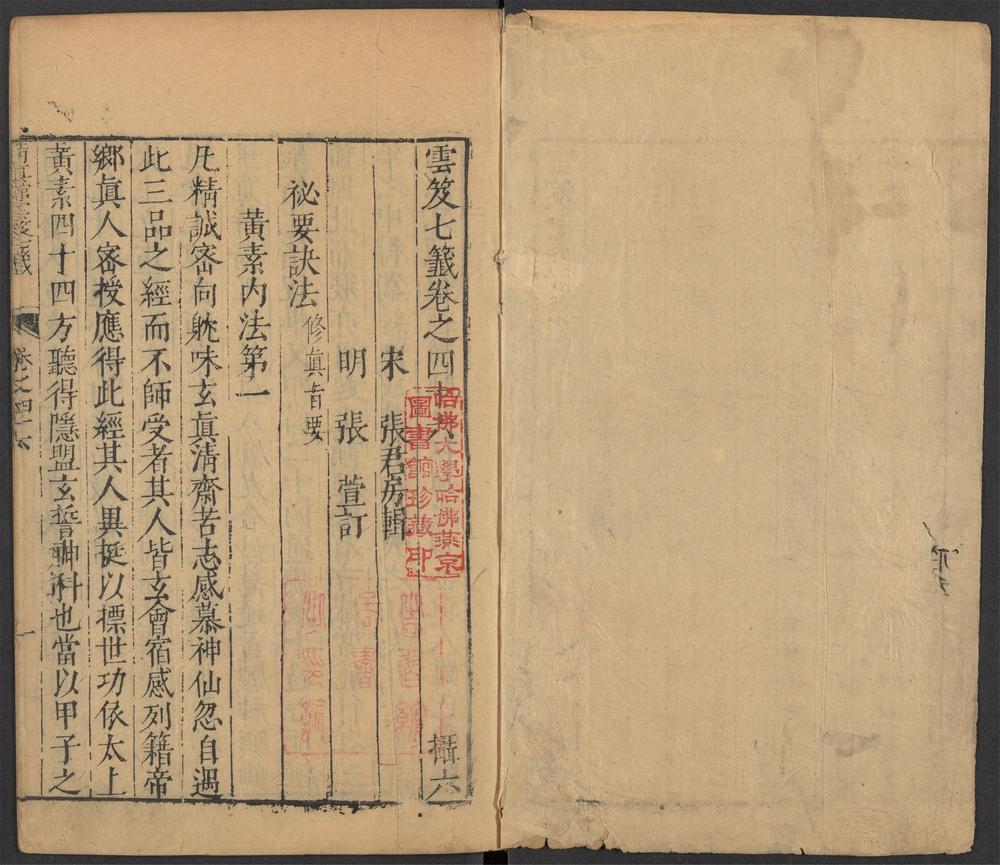 雲笈七籤卷之四十六 攝六
宋 張君房輯
明 張 萱訂
祕要訣法修眞旨要
黃素內法第一
凡精誠密向躭味玄眞清齋苦志感慕神仙忽自遇
此三品之經而不師受者其人皆玄會宿感列籍帝
鄉眞人密授應得此經其人異挺以摽世功依太上
黃素四十四方聽得隱盟玄誓神科也當以甲子之
卷之四十六 一
哈佛大學哈佛燕京
圖書館珍藏印